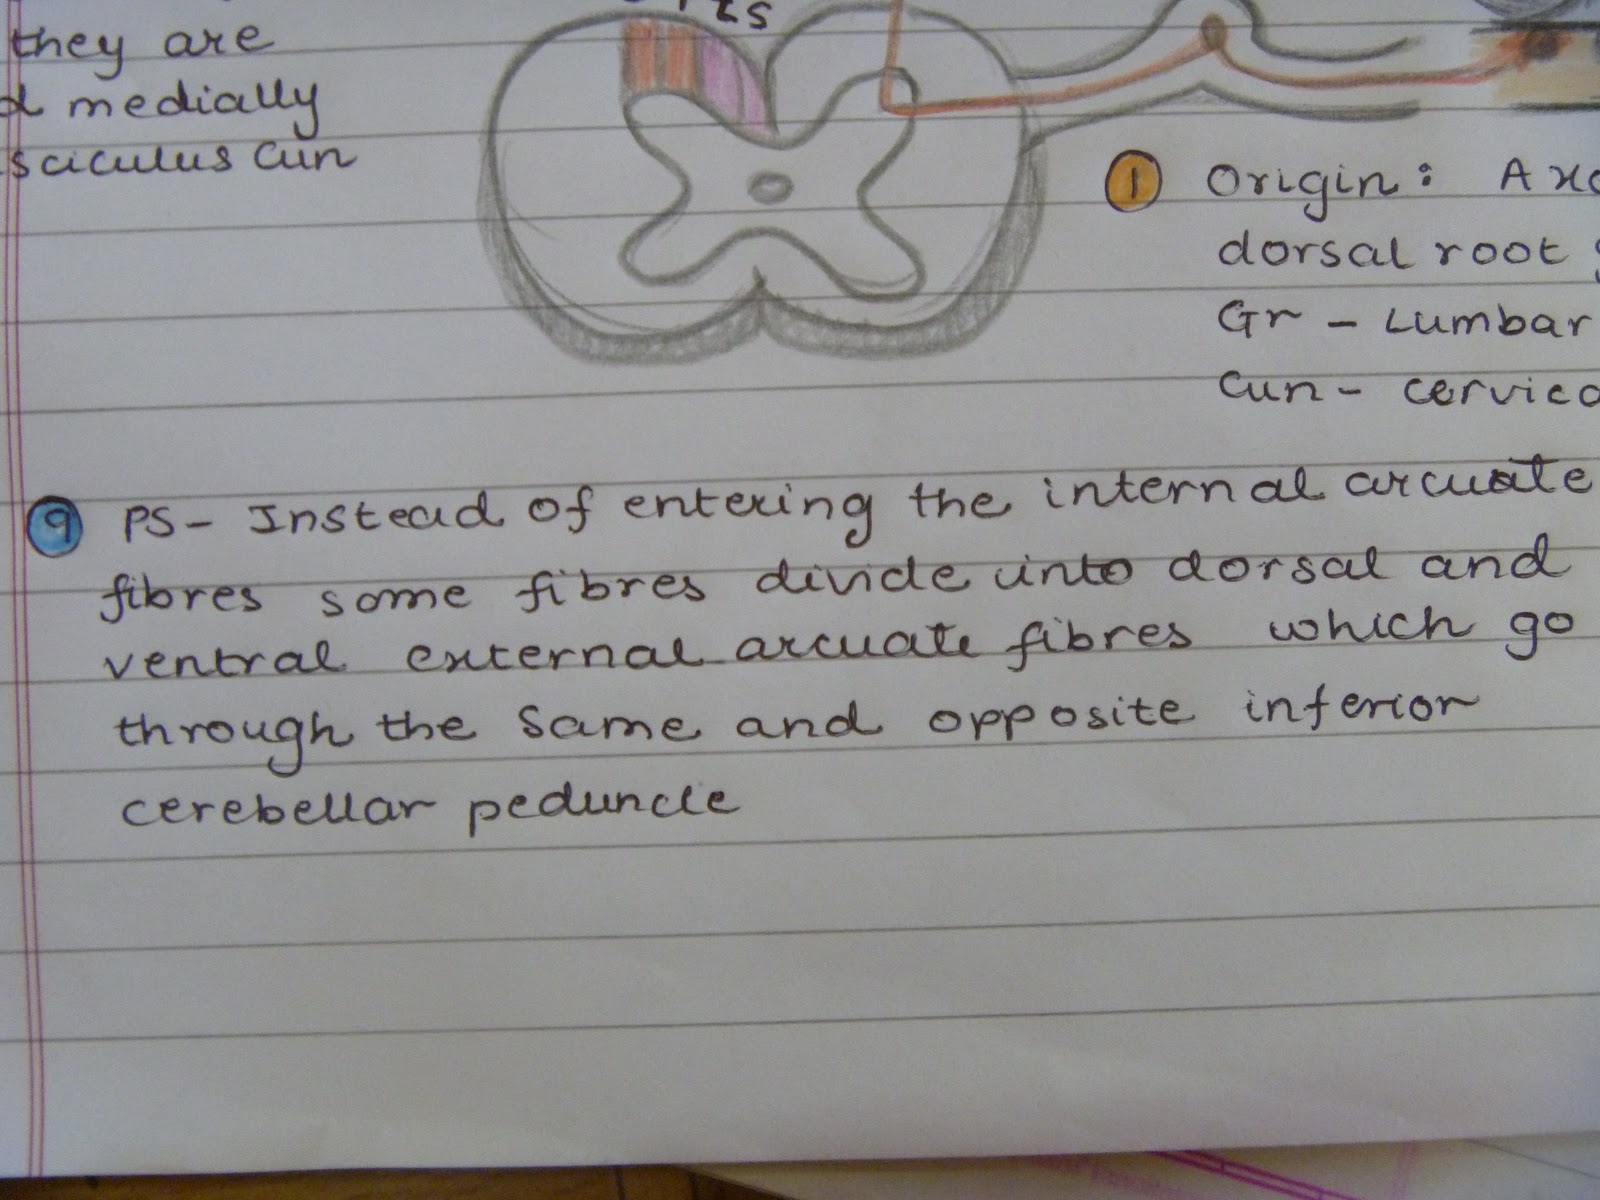 they are
medially
sciculus cun
LS
1 Origin: Axo
dorsal root
Gr - Lumbar
cun - cervica
9 PS - Instead of entering the internal arcuate
fibres some fibres divide into dorsal and
ventral external arcuate fibres which go
through the same and opposite inferior
cerebellar peduncle